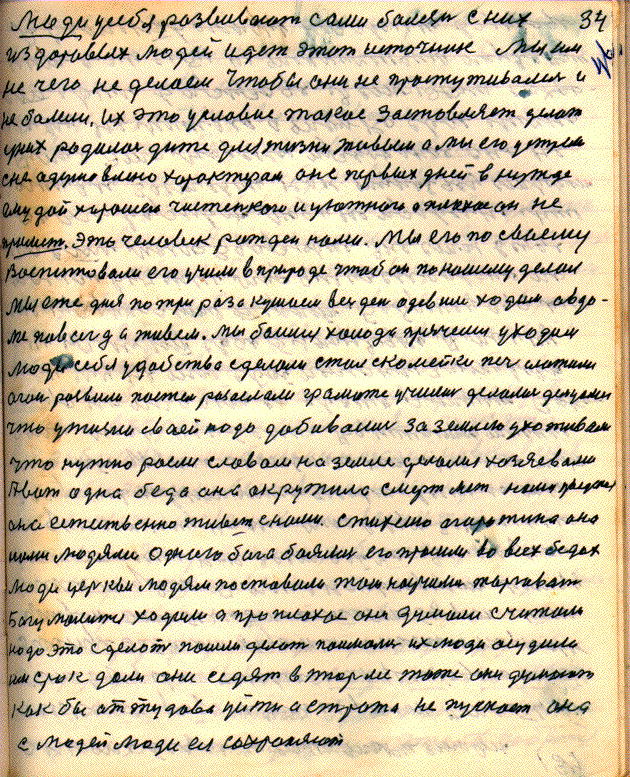 Люди у себя развивают сами болезн с них 34
из здаровых людей идет этот источник мы им
не чего не делаем чтобы они не простуживался и
не болели, их это условие такое заставляет делат
у них родилас дите для жизни живым а мы его
с не одушевлено характерам он с первых дней в нужде
ему дай хорошей чистенкого и уютного а плохое он не
примет. Этъ человек рожден нами. Мы его по своему
воспитовали его учили в природе чтоб он по нашему делал
мы еже дня по три раза кушаем весь ден одевши ходим в до-
ме повсегда живем. Мы боимся холода прячемси уходим
Люди себя удобства сделали стол скомейки печ сложили
огон развили постел разаслали грамоте училис делалис
что у жизни сваей надо добивалис за землею ухоживали
что нужно расли славам на земле делалис хозяевами
П вот одна беда она окружила смерт лет наши
она естественно живет с нами. стихию она
ими людями Одного бога боялис его просили во всех бедах
люди церкви людям поставили там научили торговат
Богу молитис ходили а про плохое они думали считали
надо это сделат пошли делат поймали их люди осудили
им срок дали они седят в тюрме тоже они думают
как бы оттудова уйти а страта не пускает она
с людей люди ея сохраняют